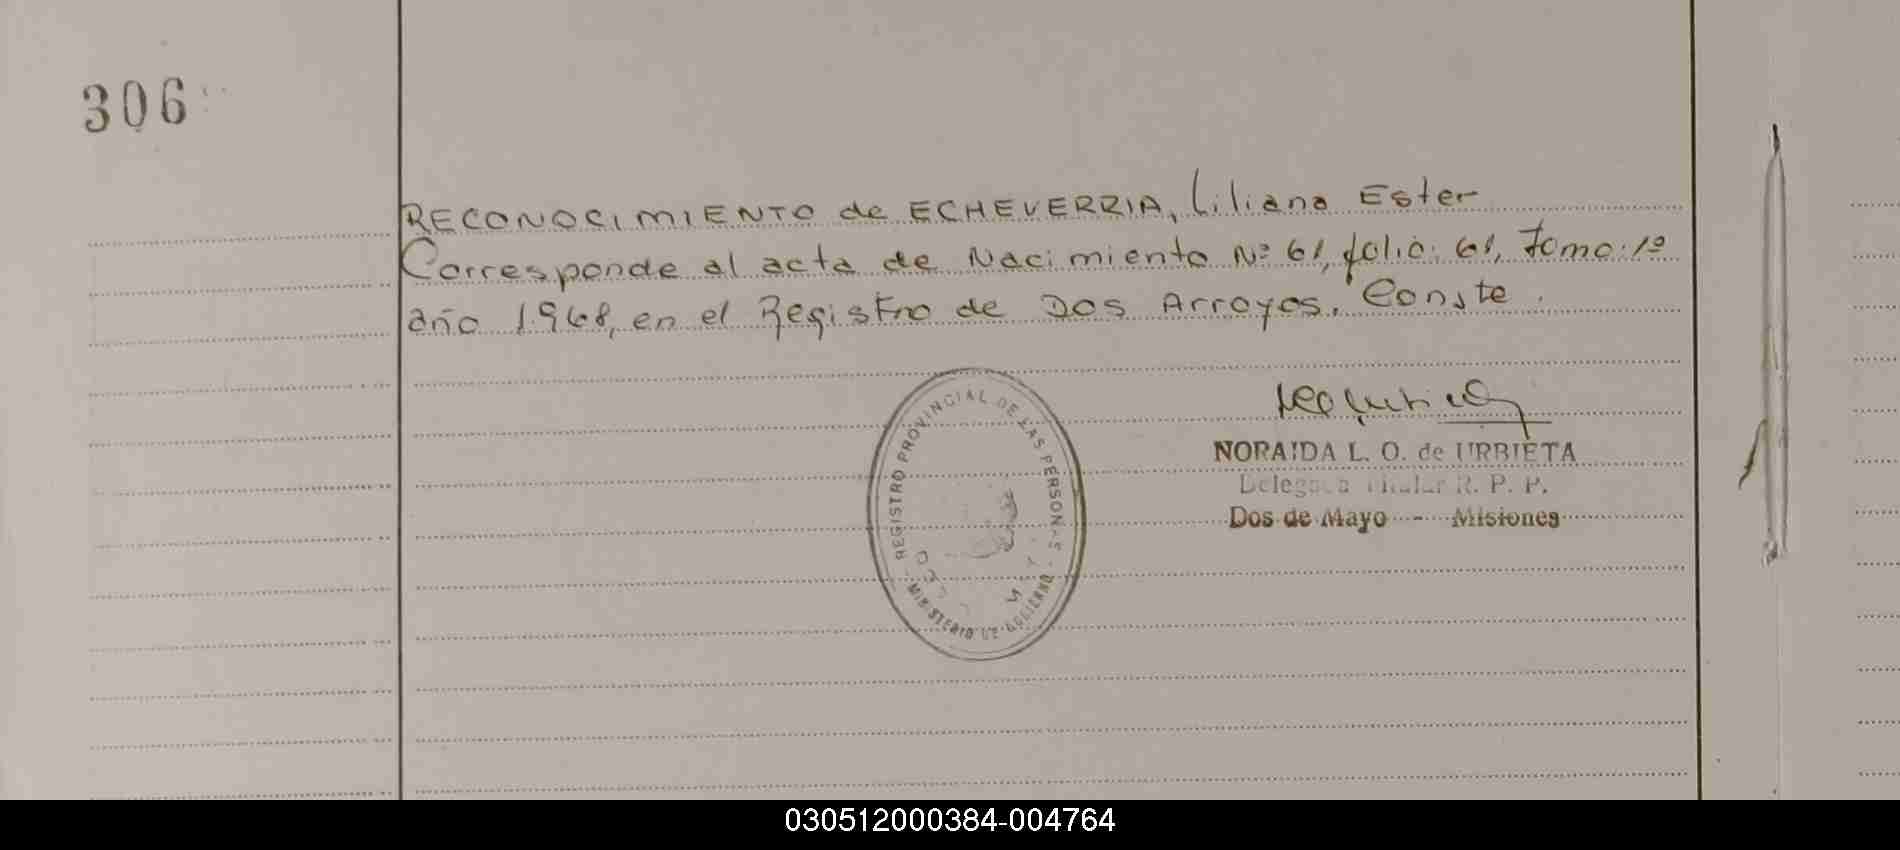 306
RECONOCIMIENTO de ECHEVERRIA, Liliana Ester
Corresponde al acta de Nacimiento Nº 61, folio: 61, Tomo: 1º
año 1.968, en el Registro de Dos Arroyos. Conste.
NORAIDA L. O. de URBIETA
Delegada Titular R. P. P.
Dos de Mayo - Misiones
REGISTRO PROVINCIAL DE LAS PERSONAS
MINISTERIO DE GOBIERNO
030512000384-004764